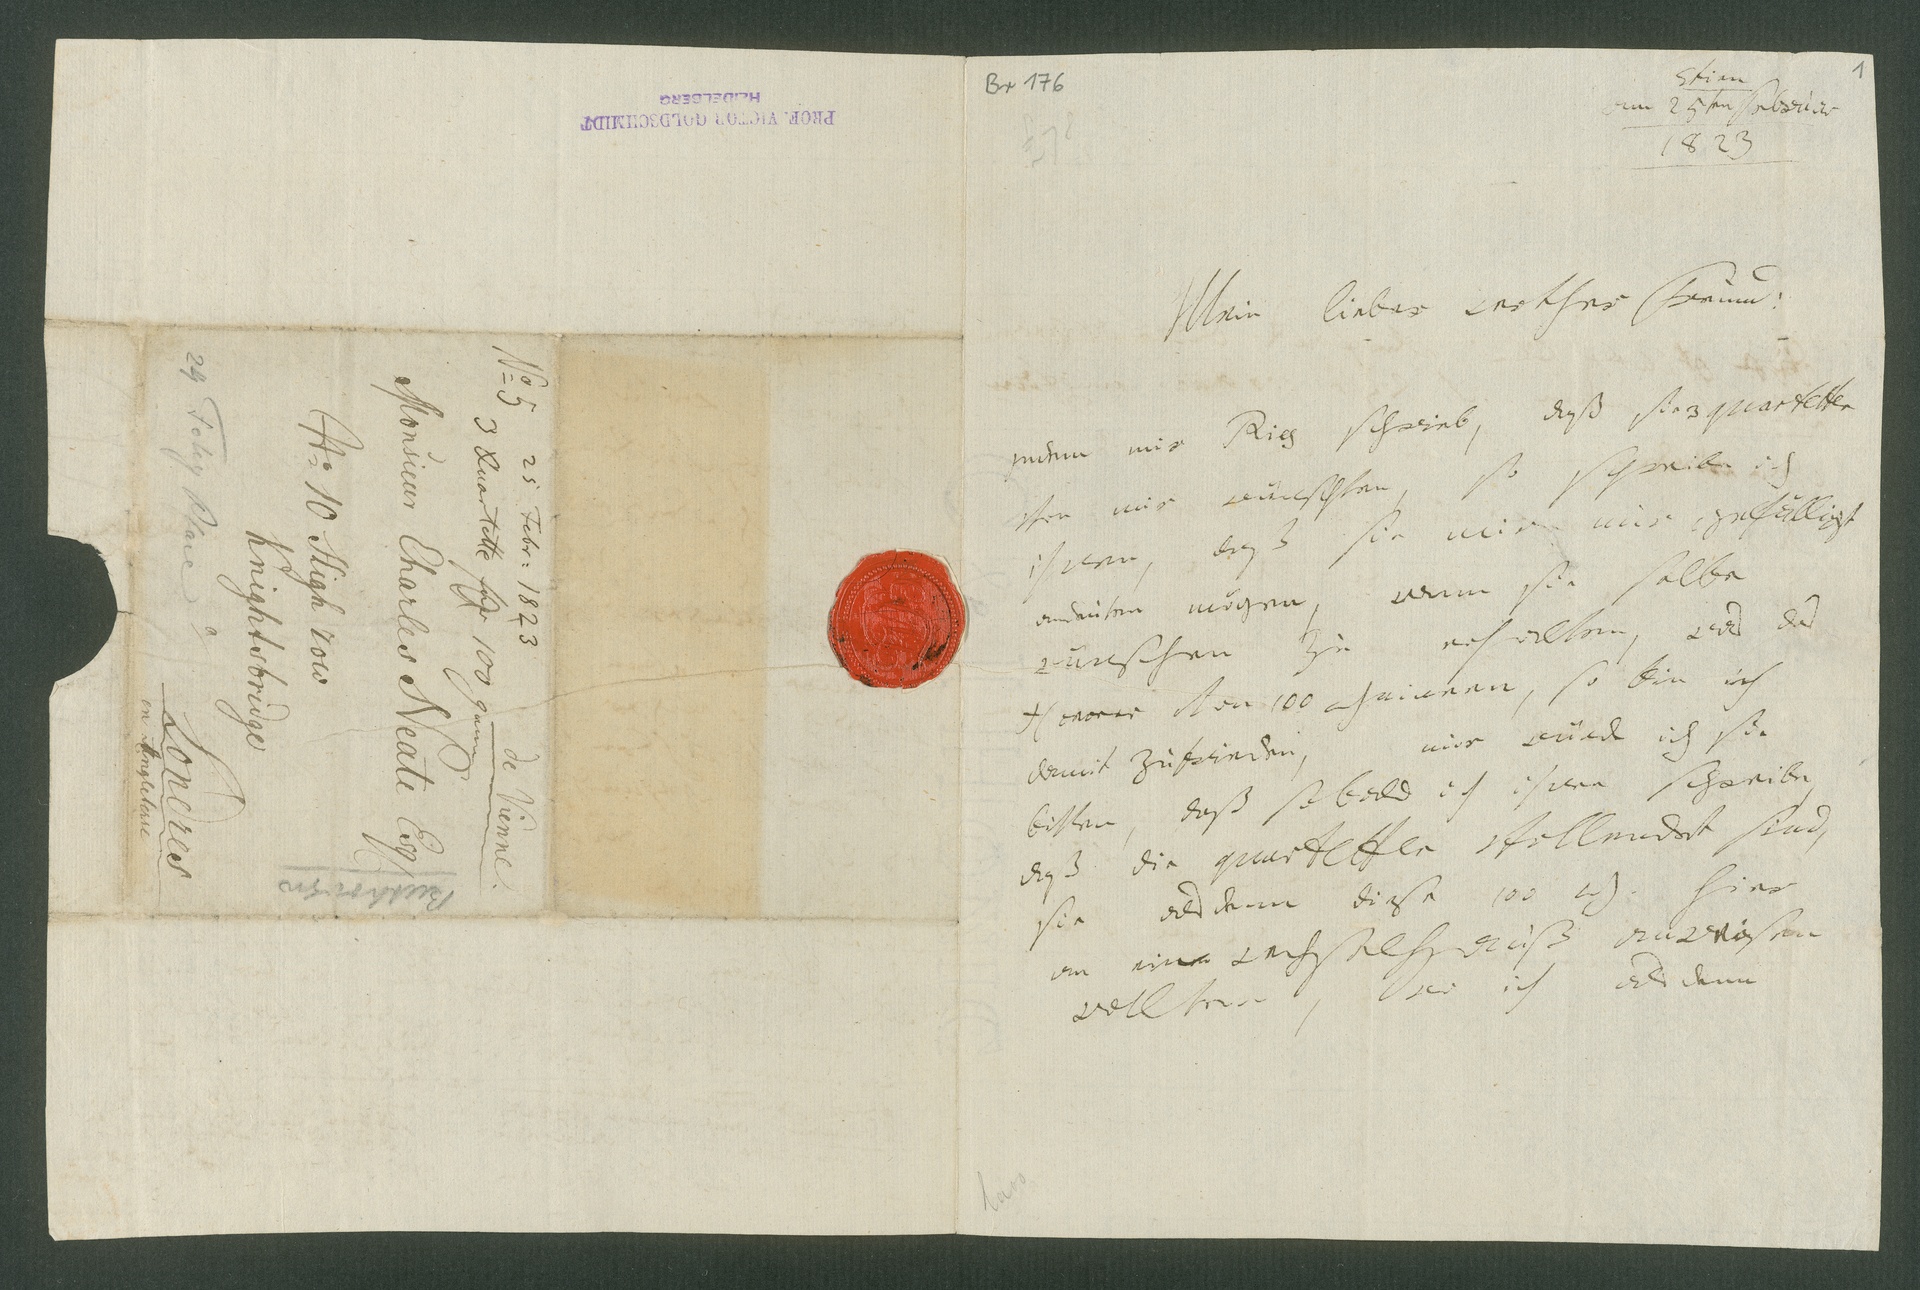 PROF. VICTOR GOLDSCHMIDT
HEIDELBERG
No 5 25 Febr: 1823
3 Quartette für 100 guinn
de Vienne.
Monsieur Charles Neate Esq
No 10 High row
Knightsbridge
a
Londres
en Angleterre
24 Foley Place
Beethoven
Br 176
1
Vien
am 25ten Februar
1823
Mein lieber werther Freund!
indem mir Ries schrieb, daß sie 3 quartetten
von mir wünschten, so schreibe ich
ihnen, daß sie mir gefälligst
andeuten mögen, wann sie selbe
wünschen zu erhalten, und das
Honorar von 100 Guineen, so bin ich
damit zufrieden, nur würde ich sie
bitten, daß sobald ich ihnen schreibe,
daß die quartetten vollendet sind,
sie alsdann diese 100 hier
an ein wechselhauß anweisen
wollten, wo ich alsdann